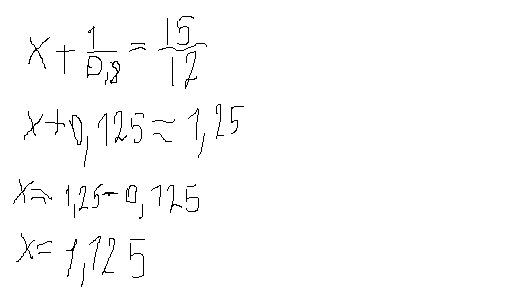 x + 1/0,8 = 15/12
x + 0,125 = 1,25
x = 1,25 - 0,125
x = 1,125